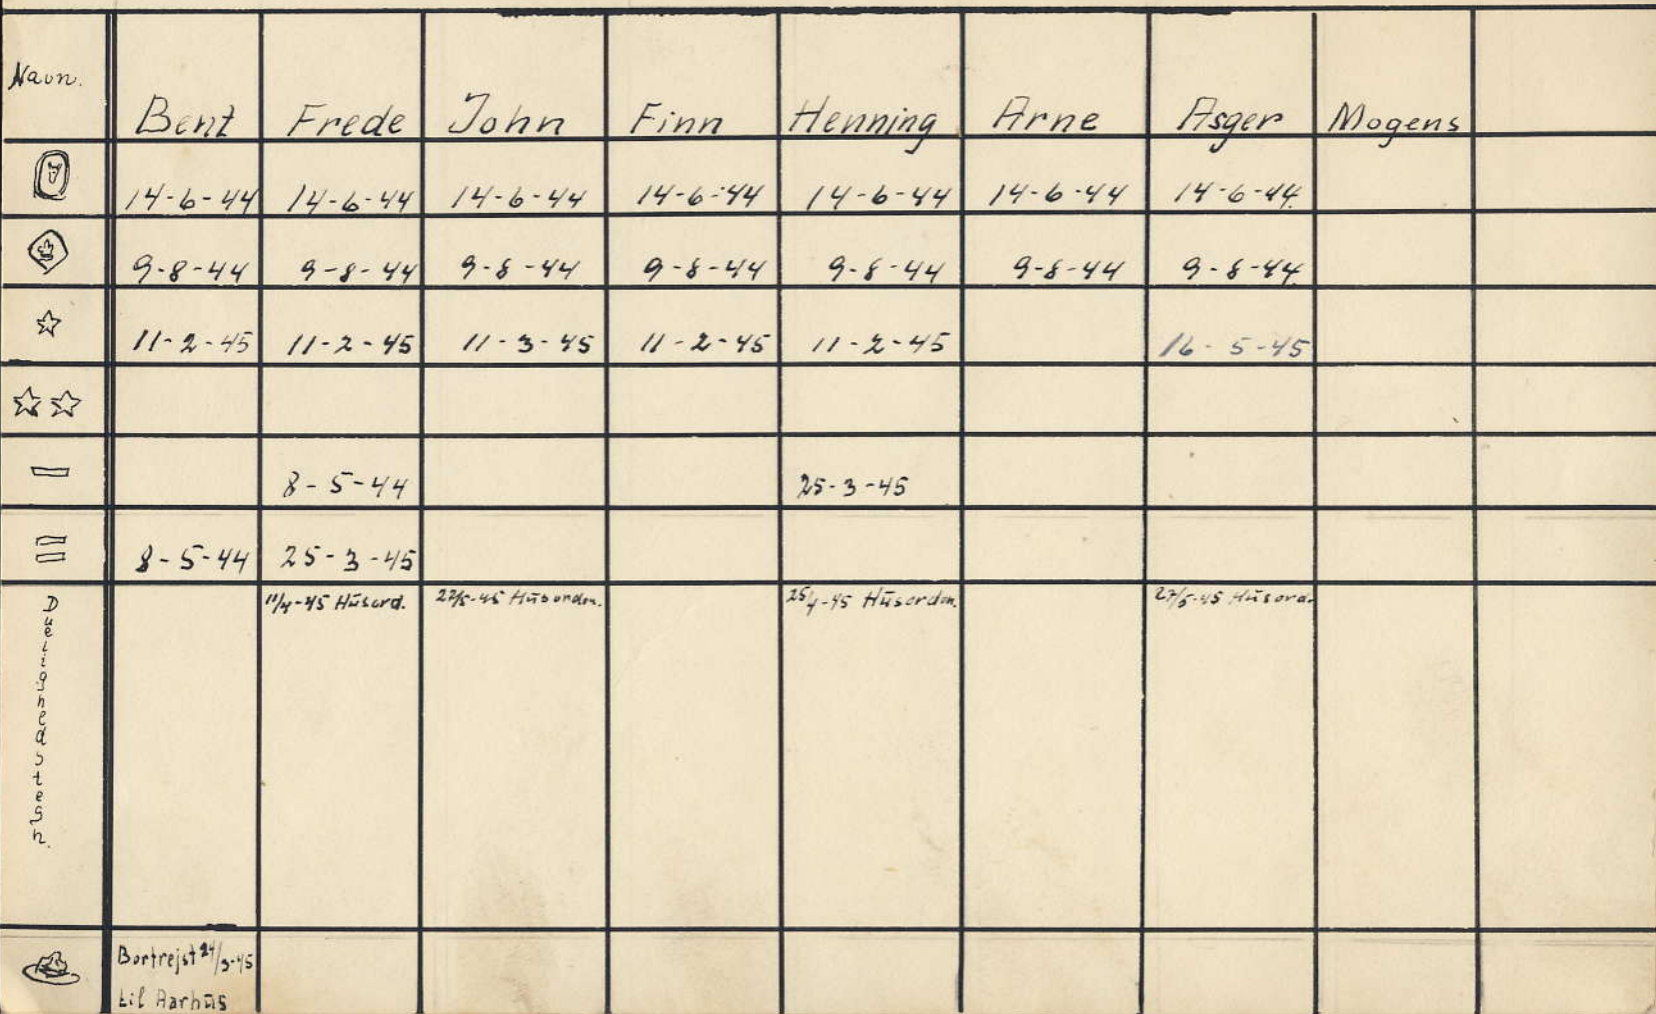 Navn. Bent Frede John Finn Henning Arne Asger Mogens
14-6-44 14-6-44 14-6-44 14-6-44 14-6-44 14-6-44 14-6-44.
9-8-44 9-8-44 9-8-44 9-8-44 9-8-44 9-8-44 9-8-44.
11-2-45 11-2-45 11-3-45 11-2-45 11-2-45 16-5-45
8-5-44 25-3-45
8-5-44 25-3-45
Duelighedstegn. 11/4-45 Hūsord. 27/5-45 Hūsorden. 25/4-45 Hūsorden. 27/5-45 Hūsord.
Bortrejst 24/3-45
til Aarhūs